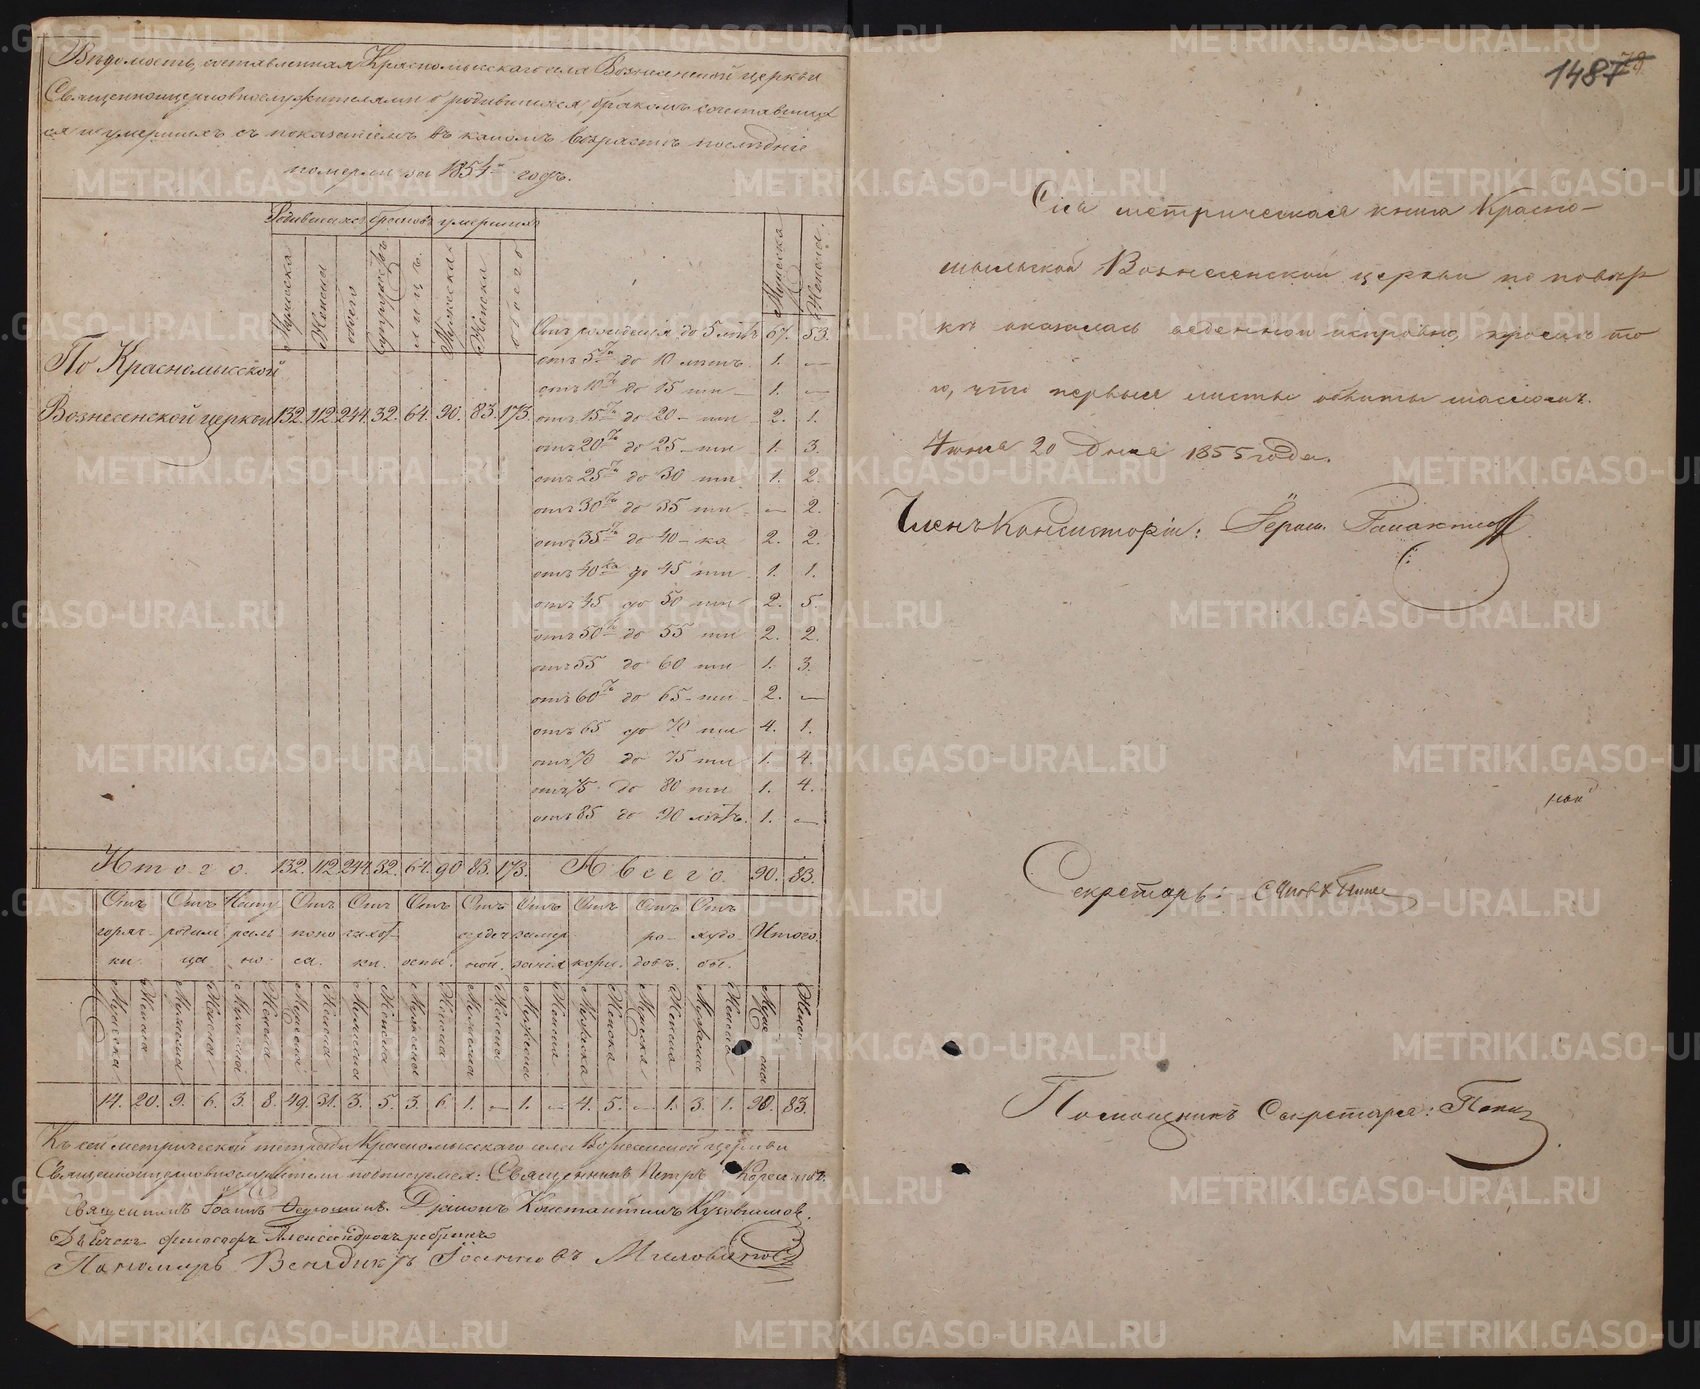 Вѣдомость, составленная Красномысскаго села Вознесенской церкви
Священноцерковнослужителями о родившихся бракомъ сочетавших
ся и умершихъ съ показаніемъ въ какомъ возрастѣ послѣдніе
померли за 1854й годъ.
Родившихся браковъ умершихъ
Мужеска Женска обоего Супружествъ лицъ. Мужеска Женска обоего Мужеска Женска.
По Красномысской
Вознесенской церкви 132. 112. 244. 32. 64. 90. 83. 173.
Отъ рожденія до 5 лѣтъ 67. 53.
отъ 5ти до 10 лѣтъ. 1. —
отъ 10ти до 15 ти — 1. —
отъ 15ти до 20 — ти 2. 1.
отъ 20ти до 25 — ти 1. 3.
отъ 25ти до 30 ти 1. 2.
отъ 30ти до 35 ти — 2.
отъ 35ти до 40 — ка 2. 2.
отъ 40ка до 45 ти 1. 1.
отъ 45 до 50 ти 2. 5.
отъ 50ти до 55 ти 2. 2.
отъ 55 до 60 ти 1. 3.
отъ 60ти до 65 — ти 2. —
отъ 65 до 70 ти 4. 1.
отъ 70 до 75 ти 1. 4.
отъ 75 до 80 ти 1. 4.
отъ 85 до 90 лѣтъ. 1. —
Итого. 132. 112. 244. 32. 64. 90 83. 173. А всего. 90. 83.
Отъ Отъ Отъ Отъ Отъ Отъ Отъ Отъ Отъ Отъ
горяч- родим поно сердеч ро- худо- Итого.
ки. ца. са. ки. оспы. ной. кори. довъ. бы.
Мужеска Женска Мужеска Женска Мужеска Женска Мужеска Женска Мужеска Женска Мужеска Женска Мужеска Женска Мужеска Женска Мужеска Женска Мужеска Женска Мужеска Женска Мужеска Женска
14. 20. 9. 6. 3. 8. 49. 31. 3. 5. 3. 6 1. — 1. — 4. 5. — 1. 3. 1. 90. 83.
Къ сей метрической тетради Красномысскаго села Вознесенской церкви
Священноцерковнослужители подписуемся: Священникъ Петръ
Священникъ Іоаннъ Діаконъ Константинъ
Дьячекъ Александровъ
Пономарь Венедиктъ Іоанновъ Миловановъ
1487
Сія метрическая книга Красно-
мысской Вознесенской церкви по повѣр
кѣ оказалась веденною исправно, кромѣ то
го, что первые листы облиты масломъ.
Іюня 20 дня 1855 года.
Членъ Консисторіи: Іером.
Секретарь:
Помощникъ Секретаря: Попов
METRIKI.GASO-URAL.RU